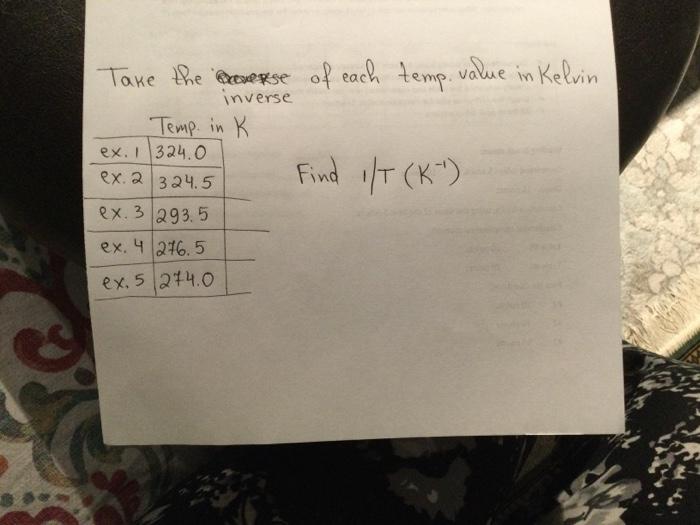 Take the of each temp. value in Kelvin
inverse
Temp. in K
ex. 1 324.0
ex. 2 324.5
ex. 3 293.5
ex. 4 276.5
ex. 5 274.0
Find 1/T (K⁻¹)